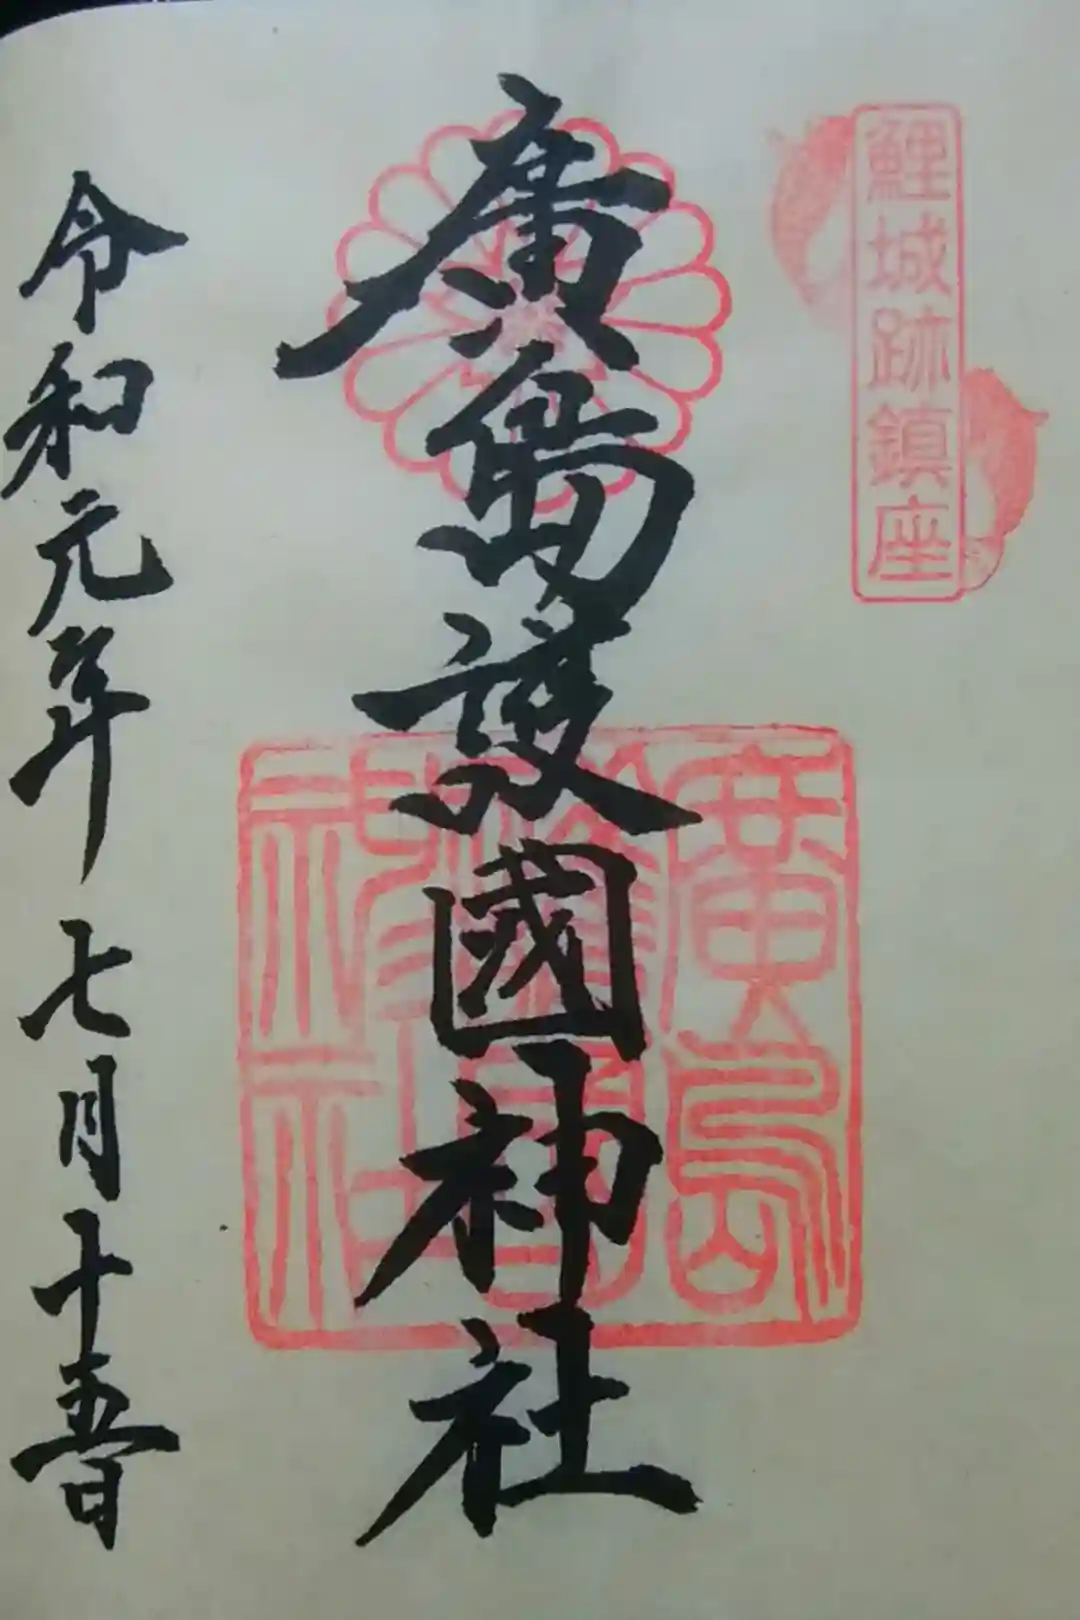 鯉城跡鎮座
廣島護國神社
廣島護國神社
令和元年七月十五日